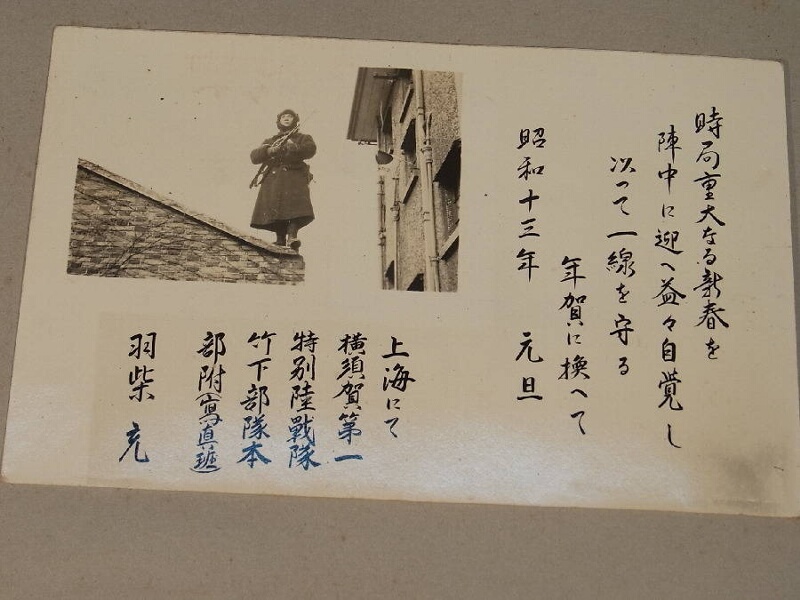 時局重大なる新春を
陣中に迎へ益々自覚し
以って一線を守る
年賀に換へて
昭和十三年　元旦
上海にて
横須賀第一
特別陸戰隊
竹下部隊本
部附(寫真班)
羽柴　充